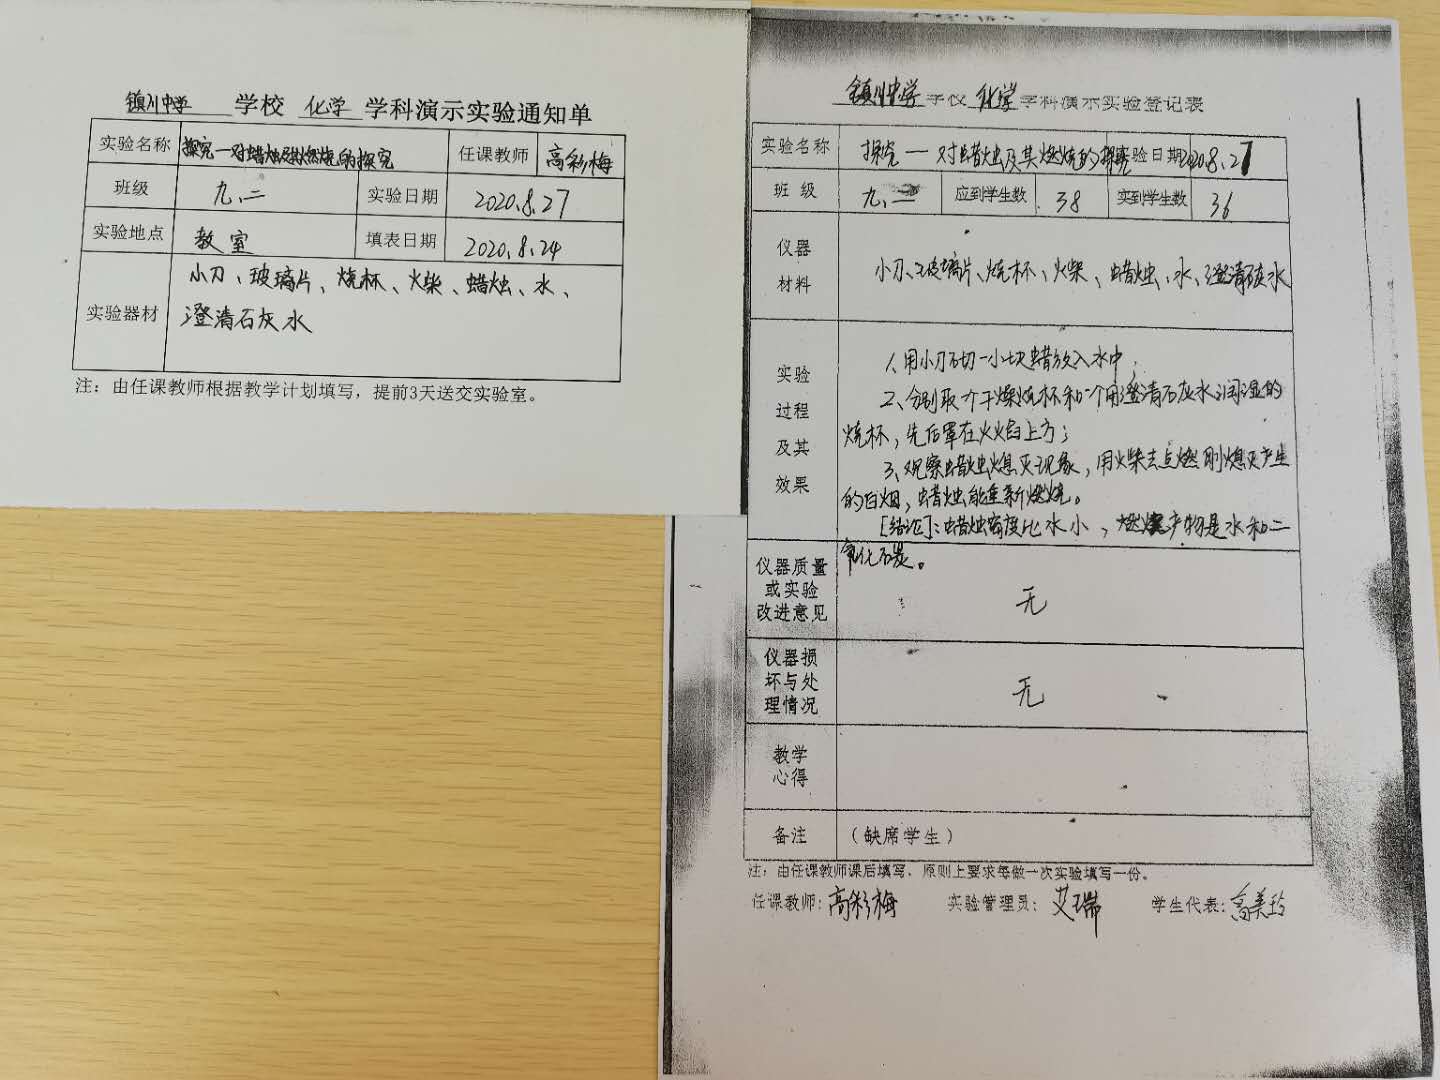 镇川中学 学校 化学 学科演示实验通知单
实验名称 探究一对蜡烛及其燃烧的探究 任课教师 高彩梅
班级 九、二 实验日期 2020.8.27
实验地点 教室 填表日期 2020.8.24
实验器材 小刀、玻璃片、烧杯、火柴、蜡烛、水、
澄清石灰水
注：由任课教师根据教学计划填写，提前3天送交实验室。
镇川中学 学校 化学 学科演示实验登记表
实验名称 探究一对蜡烛及其燃烧的探究 实验日期 2020.8.27
班级 九、二 应到学生数 38 实到学生数 36
仪器
材料
小刀、玻璃片、烧杯、火柴、蜡烛、水、澄清石灰水
实验
过程
及其
效果
1、用小刀切一小块蜡放入水中；
2、分别取一个干燥烧杯和一个用澄清石灰水润湿的
烧杯，先后罩在火焰上方；
3、观察蜡烛熄灭现象，用火柴去点燃刚熄灭产生
的白烟，蜡烛能重新燃烧。
[结论]：蜡烛密度比水小，燃烧产物是水和二
氧化碳。
仪器质量
或实验
改进意见
无
仪器损
坏与处
理情况
无
教学
心得
备注 （缺席学生）
注：由任课教师课后填写，原则上要求每做一次实验填写一份。
任课教师：高彩梅 实验管理员：艾瑞 学生代表：高美玲